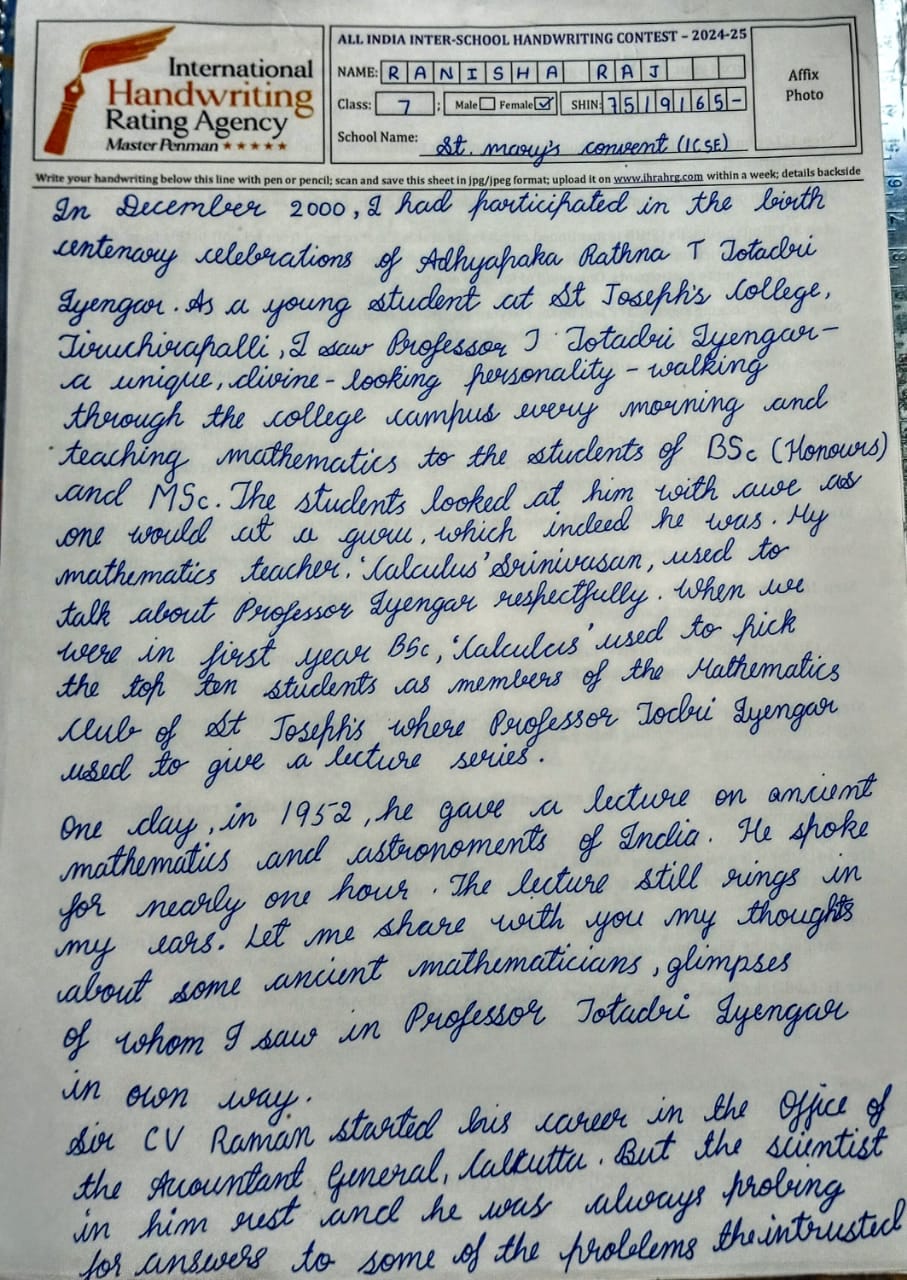 International
Handwriting
Rating Agency
Master Penman ★★★★★
ALL INDIA INTER-SCHOOL HANDWRITING CONTEST – 2024-25
NAME: RANISHA RAJ
Class: 7 ; Male Female ✓ SHIN: 7519165-
School Name: St. mary's convent (ICSE)
Affix
Photo
Write your handwriting below this line with pen or pencil; scan and save this sheet in jpg/jpeg format; upload it on www.ihrahrg.com within a week; details backside
In December 2000, I had participated in the birth
centenary celebrations of Adhyapaka Rathna T Totadri
Iyengar. As a young student at St Joseph's College,
Tiruchirapalli, I saw Professor T Totadri Iyengar–
a unique, divine-looking personality – walking
through the college campus every morning and
teaching mathematics to the students of BSc (Honours)
and MSc. The students looked at him with awe as
one would at a guru, which indeed he was. My
mathematics teacher, 'Calculus' Srinivasan, used to
talk about Professor Iyengar respectfully. When we
were in first year BSc, 'Calculus' used to pick
the top ten students as members of the Mathematics
Club of St Joseph's where Professor Todri Iyengar
used to give a lecture series.
One day, in 1952, he gave a lecture on ancient
mathematics and astronoments of India. He spoke
for nearly one hour. The lecture still rings in
my ears. Let me share with you my thoughts
about some ancient mathematicians, glimpses
of whom I saw in Professor Totadri Iyengar
in own way.
Sir CV Raman started his career in the Office of
the Accountant General, Calkutta. But the scientist
in him rest and he was always probing
for answers to some of the problems the intrusted